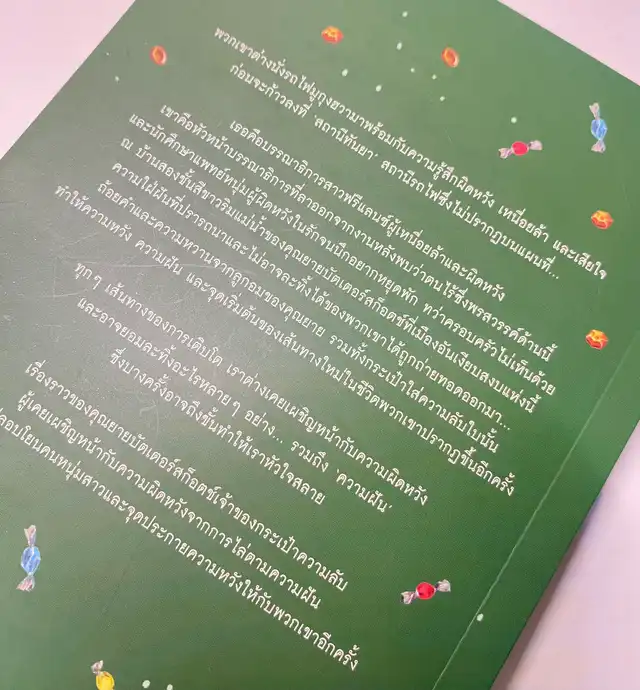 พวกเขาต่างนั่งรถไฟมูกุงฮวามาพร้อมกับความรู้สึกผิดหวัง เหนื่อยล้า และเสียใจ
ก่อนจะก้าวลงที่ ‘สถานีทันยา’ สถานีรถไฟซึ่งไม่ปรากฏบนแผนที่...
เธอคือบรรณาธิการสาวฟรีแลนซ์ผู้เหนื่อยล้าและผิดหวัง
เขาคือหัวหน้าบรรณาธิการที่ลาออกจากงานหลังพบว่าตนไร้ซึ่งพรสวรรค์ด้านนี้
และนักศึกษาแพทย์หนุ่มผู้ผิดหวังในรักจนนึกอยากหยุดพัก ทว่าครอบครัวไม่เห็นด้วย
ณ บ้านสองชั้นสีขาวริมแม่น้ำของคุณยายบัตเตอร์สก็อตช์ที่เมืองอันเงียบสงบแห่งนี้
ความใฝ่ฝันที่ปรารถนาและไม่อาจละทิ้งได้ของพวกเขาได้ถูกถ่ายทอดออกมา...
ถ้อยคำและความหวานจากลูกอมของคุณยาย รวมทั้งกระเป๋าใส่ความลับใบนั้น
ทำให้ความหวัง ความฝัน และจุดเริ่มต้นของเส้นทางใหม่ในชีวิตพวกเขาปรากฏขึ้นอีกครั้ง
ทุกๆ เส้นทางของการเติบโต เราต่างเคยเผชิญหน้ากับความผิดหวัง
และอาจยอมละทิ้งอะไรหลายๆ อย่าง... รวมถึง ‘ความฝัน’
ซึ่งบางครั้งอาจถึงขั้นทำให้เราหัวใจสลาย
เรื่องราวของคุณยายบัตเตอร์สก็อตช์เจ้าของกระเป๋าความลับ
ผู้เคยเผชิญหน้ากับความผิดหวังจากการไล่ตามความฝัน
ปลอบโยนคนหนุ่มสาวและจุดประกายความหวังให้กับพวกเขาอีกครั้ง